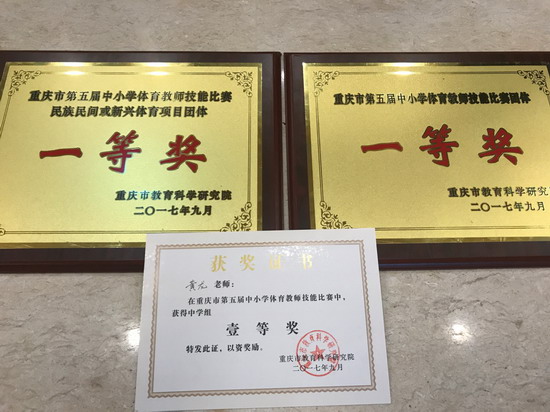 重庆市第五届中小学体育教师技能比赛
民族民间或新兴体育项目团体
一等奖
重庆市教育科学研究院
二〇一七年九月
重庆市第五届中小学体育教师技能比赛团体
一等奖
重庆市教育科学研究院
二〇一七年九月
获奖证书
老师：
在重庆市第五届中小学体育教师技能比赛中，
获得中学组
壹等奖
特发此证，以资奖励。
重庆市教育科学研究院
二〇一七年九月